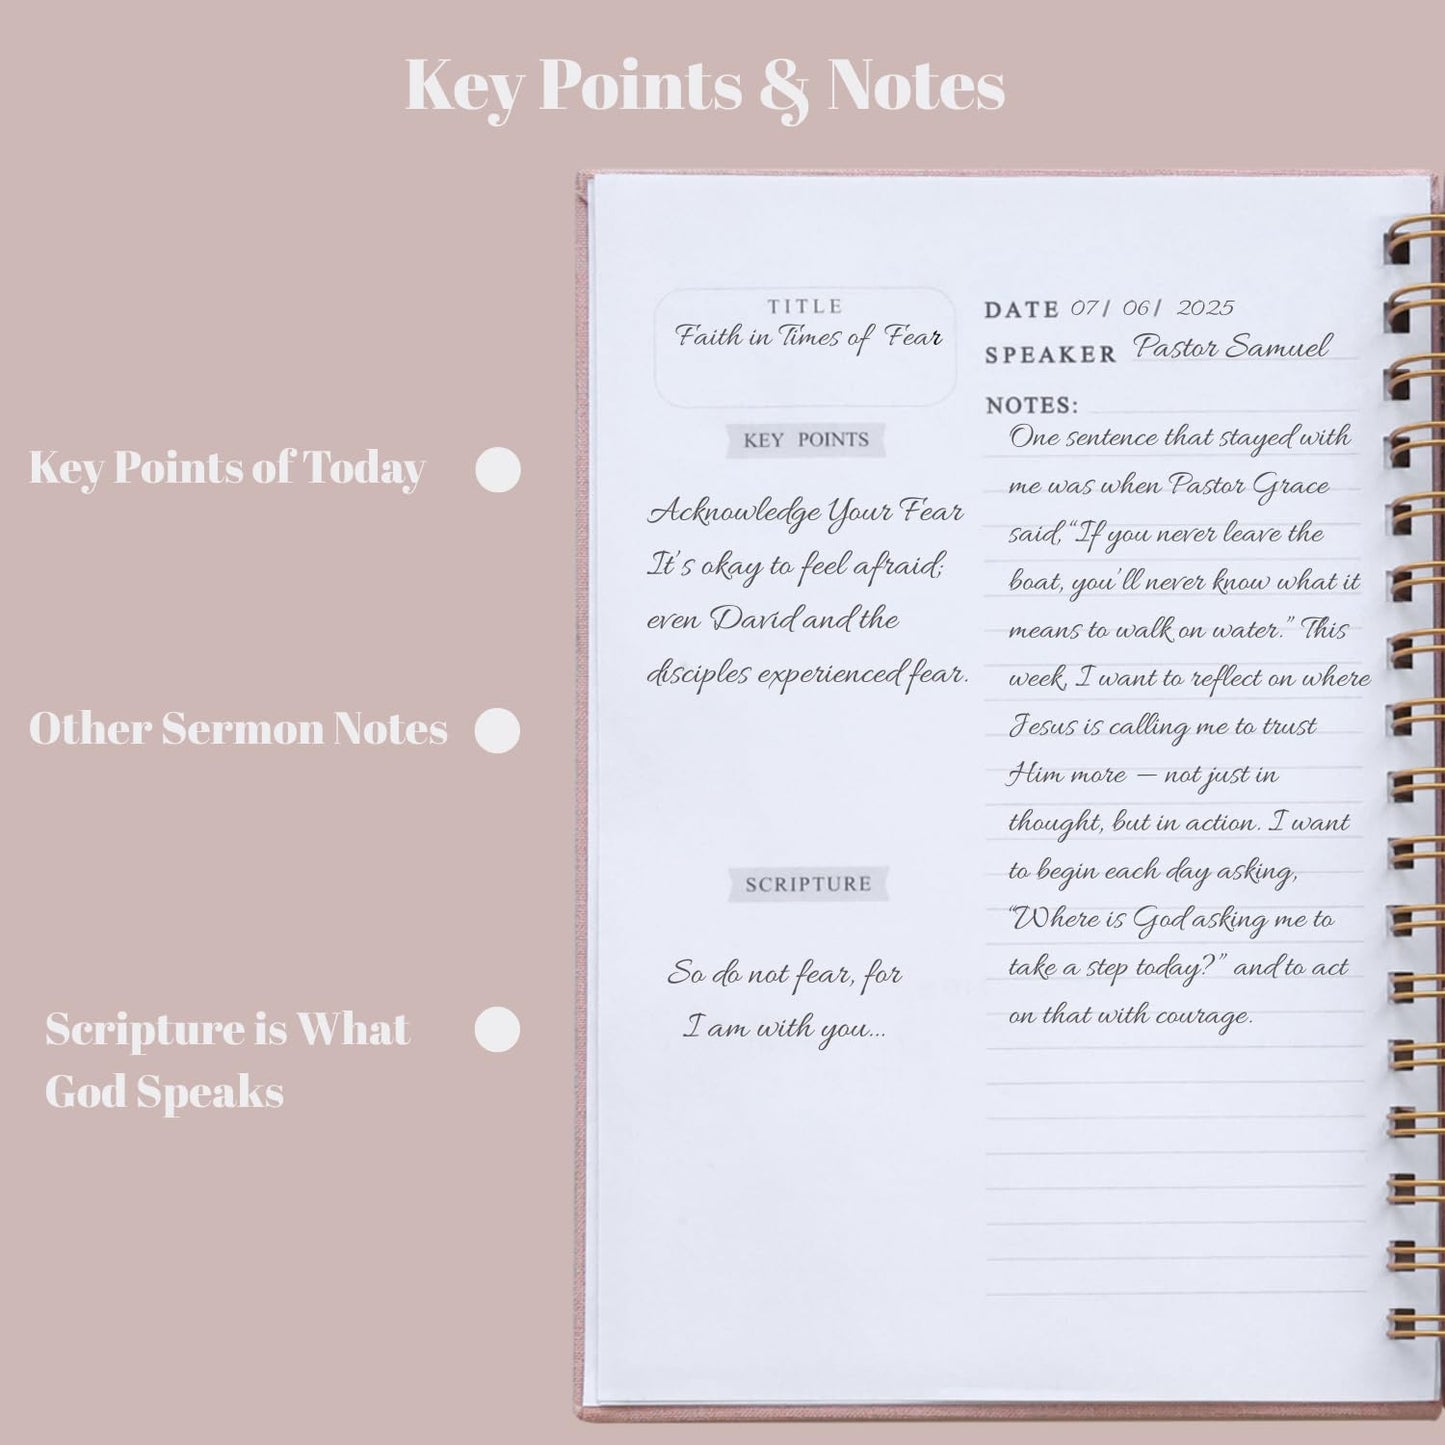 Key Points & Notes
Key Points of Today
Other Sermon Notes
Scripture is What
God Speaks
TITLE
Faith in Times of Fear
KEY POINTS
Acknowledge Your Fear
It's okay to feel afraid;
even David and the
disciples experienced fear.
SCRIPTURE
So do not fear, for
I am with you...
DATE 07/ 06/ 2025
SPEAKER Pastor Samuel
NOTES:
One sentence that stayed with
me was when Pastor Grace
said, “If you never leave the
boat, you'll never know what it
means to walk on water.” This
week, I want to reflect on where
Jesus is calling me to trust
Him more — not just in
thought, but in action. I want
to begin each day asking,
“Where is God asking me to
take a step today?” and to act
on that with courage.